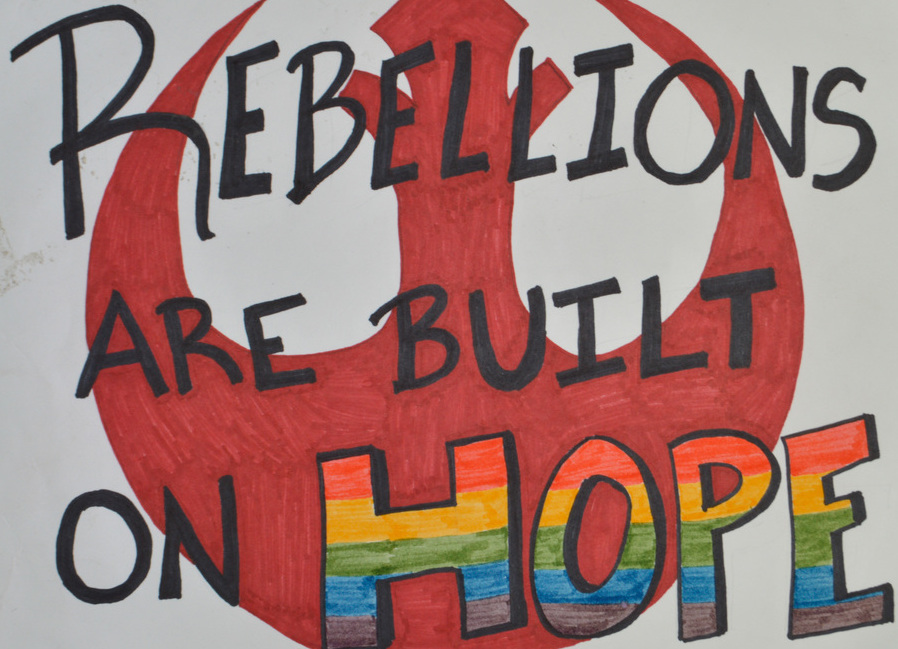 REBELLIONS
ARE BUILT
ON HOPE